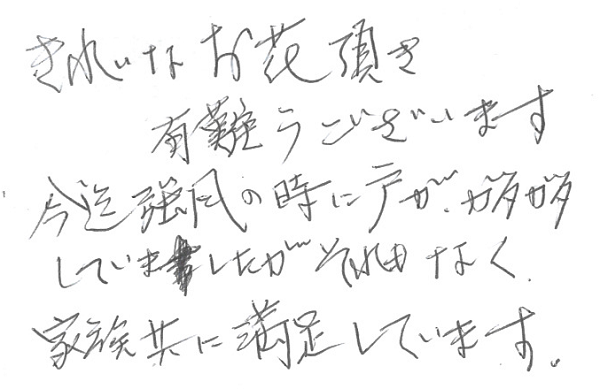 きれいなお花頂き
有難うございます
今迄強風の時に戸が、ガタガタ
していましたがそれもなく、
家族共に満足しています。